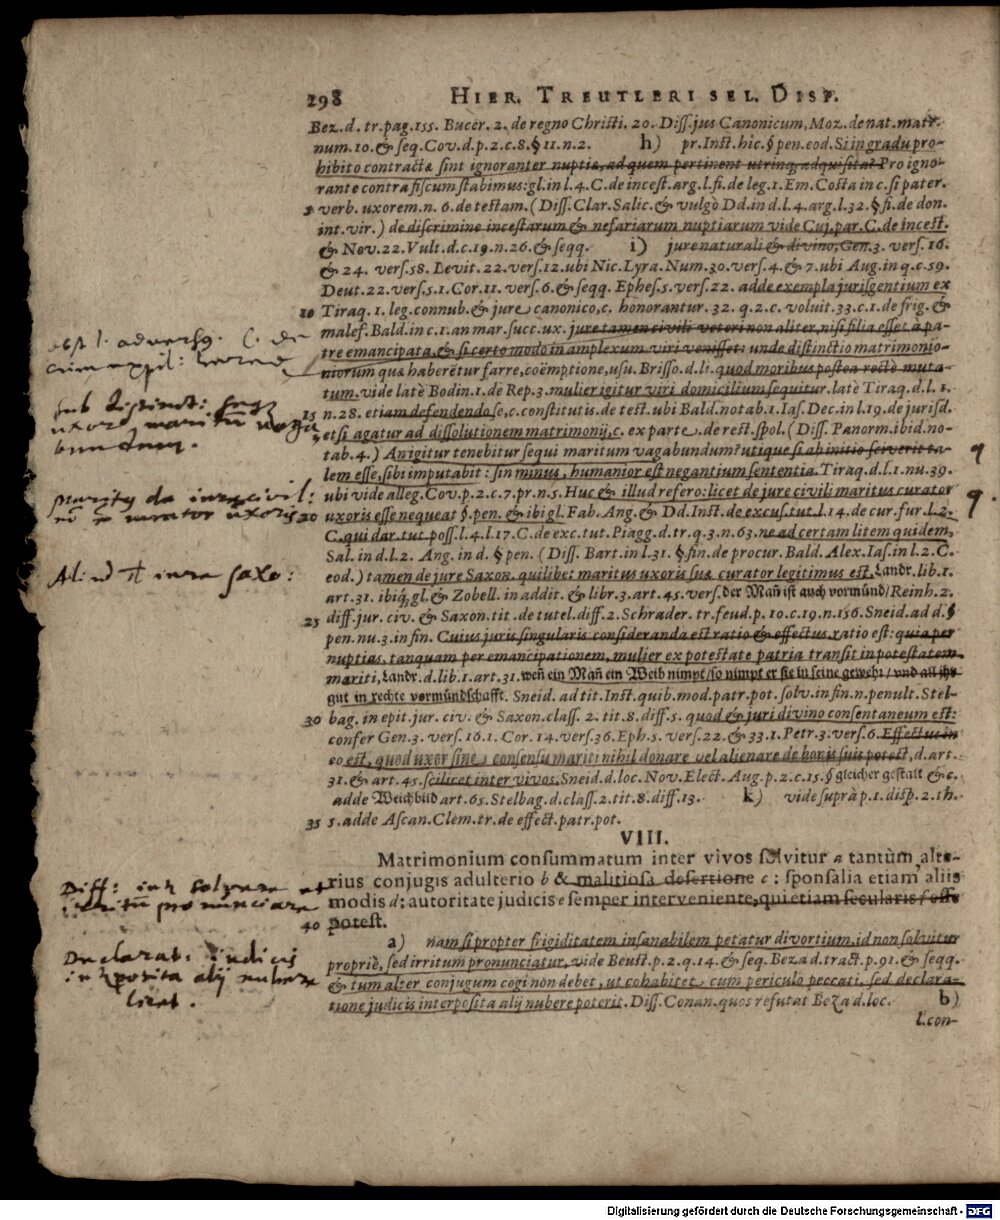 298 HIER. TREUTLERI SEL. DISP.
Bez. d. tr. pag. 155. Bucer. 2. de regno Christi. 20. Diss. jus Canonicum, Moz. de nat. matr.
num. 10. & seq. Cov. d. p. 2. c. 8. § 11. n. 2. h) pr. Inst. hîc. § pen. eod. Si in gradu pro-
hibito contractæ sint ignoranter nuptiæ, ad quem pertinent utrinq; adquisita? Pro igno-
rante contra fiscum stabimus: gl. in l. 4. C. de incest. arg. l. fi. de leg. 1. Em. Costa in c. si pater.
5 verb. uxorem. n. 6. de testam. (Diss. Clar. Salic. & vulgò Dd. in d. l. 4. arg. l. 32. § fi. de don.
int. vir.) de discrimine incestarum & nefariarum nuptiarum vide Cuj. par. C. de incest.
& Nov. 22. Vult. d. c. 19. n. 26. & seqq. i) jure naturali & divino, Gen. 3. vers. 16.
& 24. vers. 58. Levit. 22. vers. 12. ubi Nic. Lyra. Num. 30. vers. 4. & 7. ubi Aug. in q. c. 59.
Deut. 22. vers. 5. 1. Cor. 11. vers. 6. & seqq. Ephes. 5. vers. 22. adde exempla jurisgentium ex
10 Tiraq. 1. leg. connub. & jure canonico, c. honorantur. 32. q. 2. c. voluit. 33. c. 1. de frig. &
malef. Bald. in c. 1. an mar. succ. ux. jure tamen civili veteri non aliter, nisi filia esset à pa-
tre emancipata, & si certo modo in amplexum viri venisset: unde distinctio matrimonio-
niorum quæ haberētur farre, coëmptione, usu. Brisso. d. l. quod moribus postea rectè muta-
tum. vide latè Bodin. 1. de Rep. 3. mulier igitur viri domicilium sequitur. latè Tiraq. d. l. 1.
15 n. 28. etiam defendendo se, c. constitutis. de test. ubi Bald. notab. 1. Ias. Dec. in l. 19. de jurisd.
etsi agatur ad dissolutionem matrimonij, c. ex parte. de rest. spol. (Diss. Panorm. ibid. no-
tab. 4.) An igitur tenebitur sequi maritum vagabundum? utique si ab initio sciverit ta-
lem esse, sibi imputabit: sin minus, humanior est negantium sententia. Tiraq. d. l. 1. nu. 39.
ubi vide alleg. Cov. p. 2. c. 7. pr. n. 5. Huc & illud refero: licet de jure civili maritus curator
20 uxoris esse nequeat §. pen. & ibi gl. Fab. Ang. & Dd. Inst. de excus. tut. l. 14. de cur. fur. l. 2.
C. qui dar. tut. poss. l. 4. l. 17. C. de exc. tut. Piagg. d. tr. q. 3. n. 63. ne ad certam litem quidem,
Sal. in d. l. 2. Ang. in d. § pen. (Diss. Bart. in l. 31. § fin. de procur. Bald. Alex. Ias. in l. 2. C.
eod.) tamen de jure Saxon. quilibet maritus uxoris suæ curator legitimus est. Landr. lib. 1.
art. 31. ibiq; gl. & Zobell. in addit. & libr. 3. art. 45. vers. der Mañ ist auch vormünd/ Reinh. 2.
25 diff. jur. civ. & Saxon. tit. de tutel. diff. 2. Schrader. tr. feud. p. 10. c. 19. n. 156. Sneid. ad d. §
pen. nu. 3. in fin. Cuius juris singularis consideranda est ratio & effectus. ratio est: quia per
nuptias, tanquam per emancipationem, mulier ex potestate patria transit in potestatem
mariti, Landr. d. lib. 1. art. 31. weñ ein Mañ ein Weib nimpt/ so nimpt er sie in seine gewehr/ und all ihr
gut in rechte vormündschafft. Sneid. ad tit. Inst. quib. mod. patr. pot. solv. in fin. n. penult. Stel-
30 bag. in epit. jur. civ. & Saxon. class. 2. tit. 8. diff. 5. quod & juri divino consentaneum est:
confer Gen. 3. vers. 16. 1. Cor. 14. vers. 36. Eph. 5. vers. 22. & 33. 1. Petr. 3. vers. 6. Effectus in
eo est, quod uxor sine consensu mariti nihil donare vel alienare de bonis suis potest, d. art.
31. & art. 45. scilicet inter vivos. Sneid. d. loc. Nov. Elect. Aug. p. 2. c. 15. § gleicher gestalt &c.
adde Weichbild art. 65. Stelbag. d. class. 2. tit. 8. diff. 13. k) vide suprà p. 1. disp. 2. th.
35 5. adde Ascan. Clem. tr. de effect. patr. pot.
VIII.
Matrimonium consummatum inter vivos solvitur a tantùm alte-
rius conjugis adulterio b & malitiosa desertione c: sponsalia etiam aliis
modis d: autoritate judicis e semper interveniente, qui etiam secularis f esse
40 potest.
a) nam si propter frigiditatem insanabilem petatur divortium, id non solvitur
propriè, sed irritum pronunciatur, vide Beust. p. 2. q. 14. & seq. Beza d. tract. p. 91. & seqq.
& tum alter conjugum cogi non debet, ut cohabitet, cum periculo peccati, sed declara-
tione judicis interposita alij nubere poterit. Diss. Conan. quos refutat Beza d. loc. b)
l. con-
sub distinct:
uxor maritū vaga
bundum.
Maritus de iure civil:
curator uxoris
Aliud iure Saxo:
Diff: solvere et
irritū pronunciare
Declarat: iudicis
interposita alij nubere
licet.
Digitalisierung gefördert durch die Deutsche Forschungsgemeinschaft - DFG